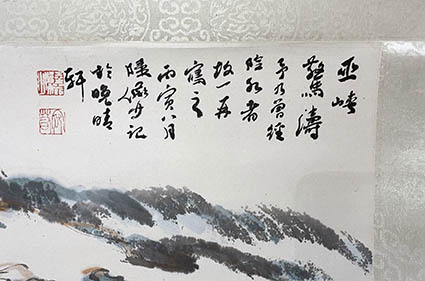 巫峽
驚濤
予乃曾經
險水者
故一再
寫之
丙寅八月
陸儼少記
於晚晴
軒